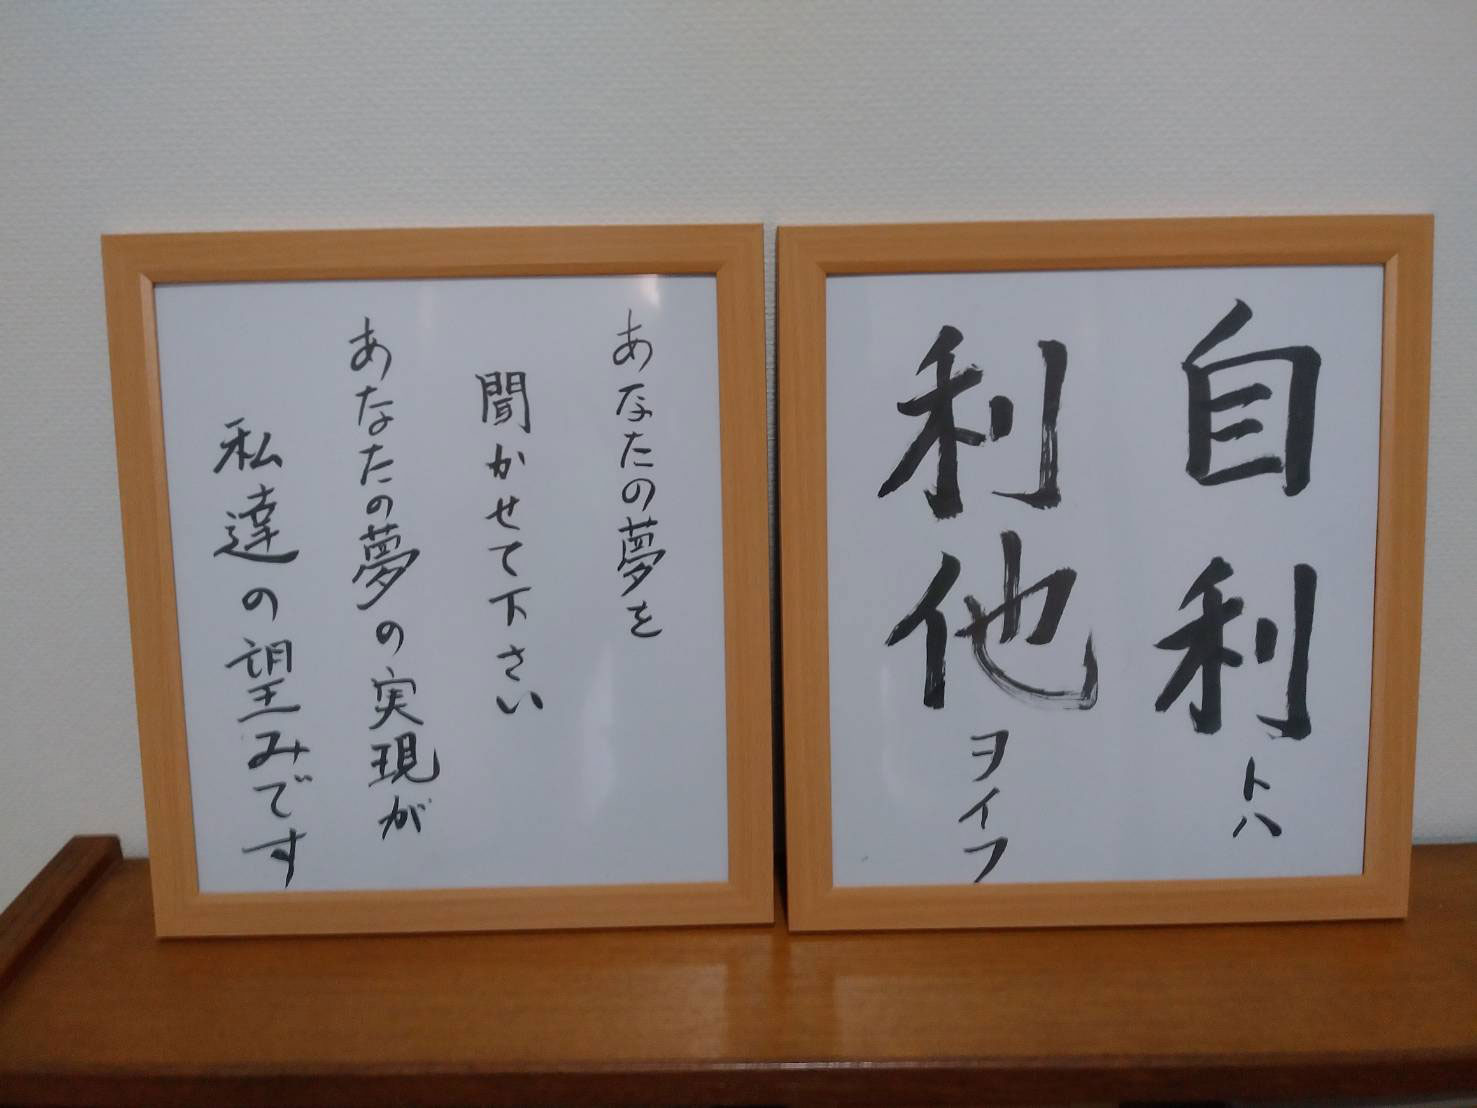 自利トハ
利他ヲイフ
あなたの夢を
聞かせて下さい
あなたの夢の実現が
私達の望みです